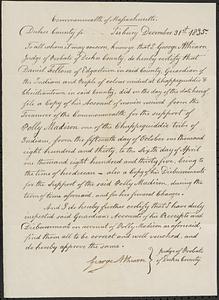 Commonwealth of Massachusetts.
Dukes County ss. Tisbury December 31st 1835.
To all whom it may concern, know ye, that I George Athearn
Judge of Probate of Dukes County, do hereby certify that
Daniel Fellows of Edgartown in said County, Guardian of
the Indians and People of colour resident at Chappequiddic &
Christiantown in said County, did on the day of the date hereof
file a Copy of his Account of monies received from the
Treasurer of the Commonwealth for the support of
Polly Madison one of the Chappequiddic tribe of
Indians, from the fifteenth day of October in the year
eighteen hundred and thirty to the Sixth day of April
one thousand eight hundred and thirty five, being to the
time of her decease – also a Copy of his Disbursements
for the Support of the said Polly Madison, during the
term of time aforesaid, and for her funeral Charges.
And I do hereby further certify that I have duly
inspected said Guardians Accounts of his Receipts and
Disbursements on account of Polly Madison aforesaid,
find them all to be correct and well vouched, and
do hereby approve the same.
George Athearn } Judge of Probate
of Dukes County